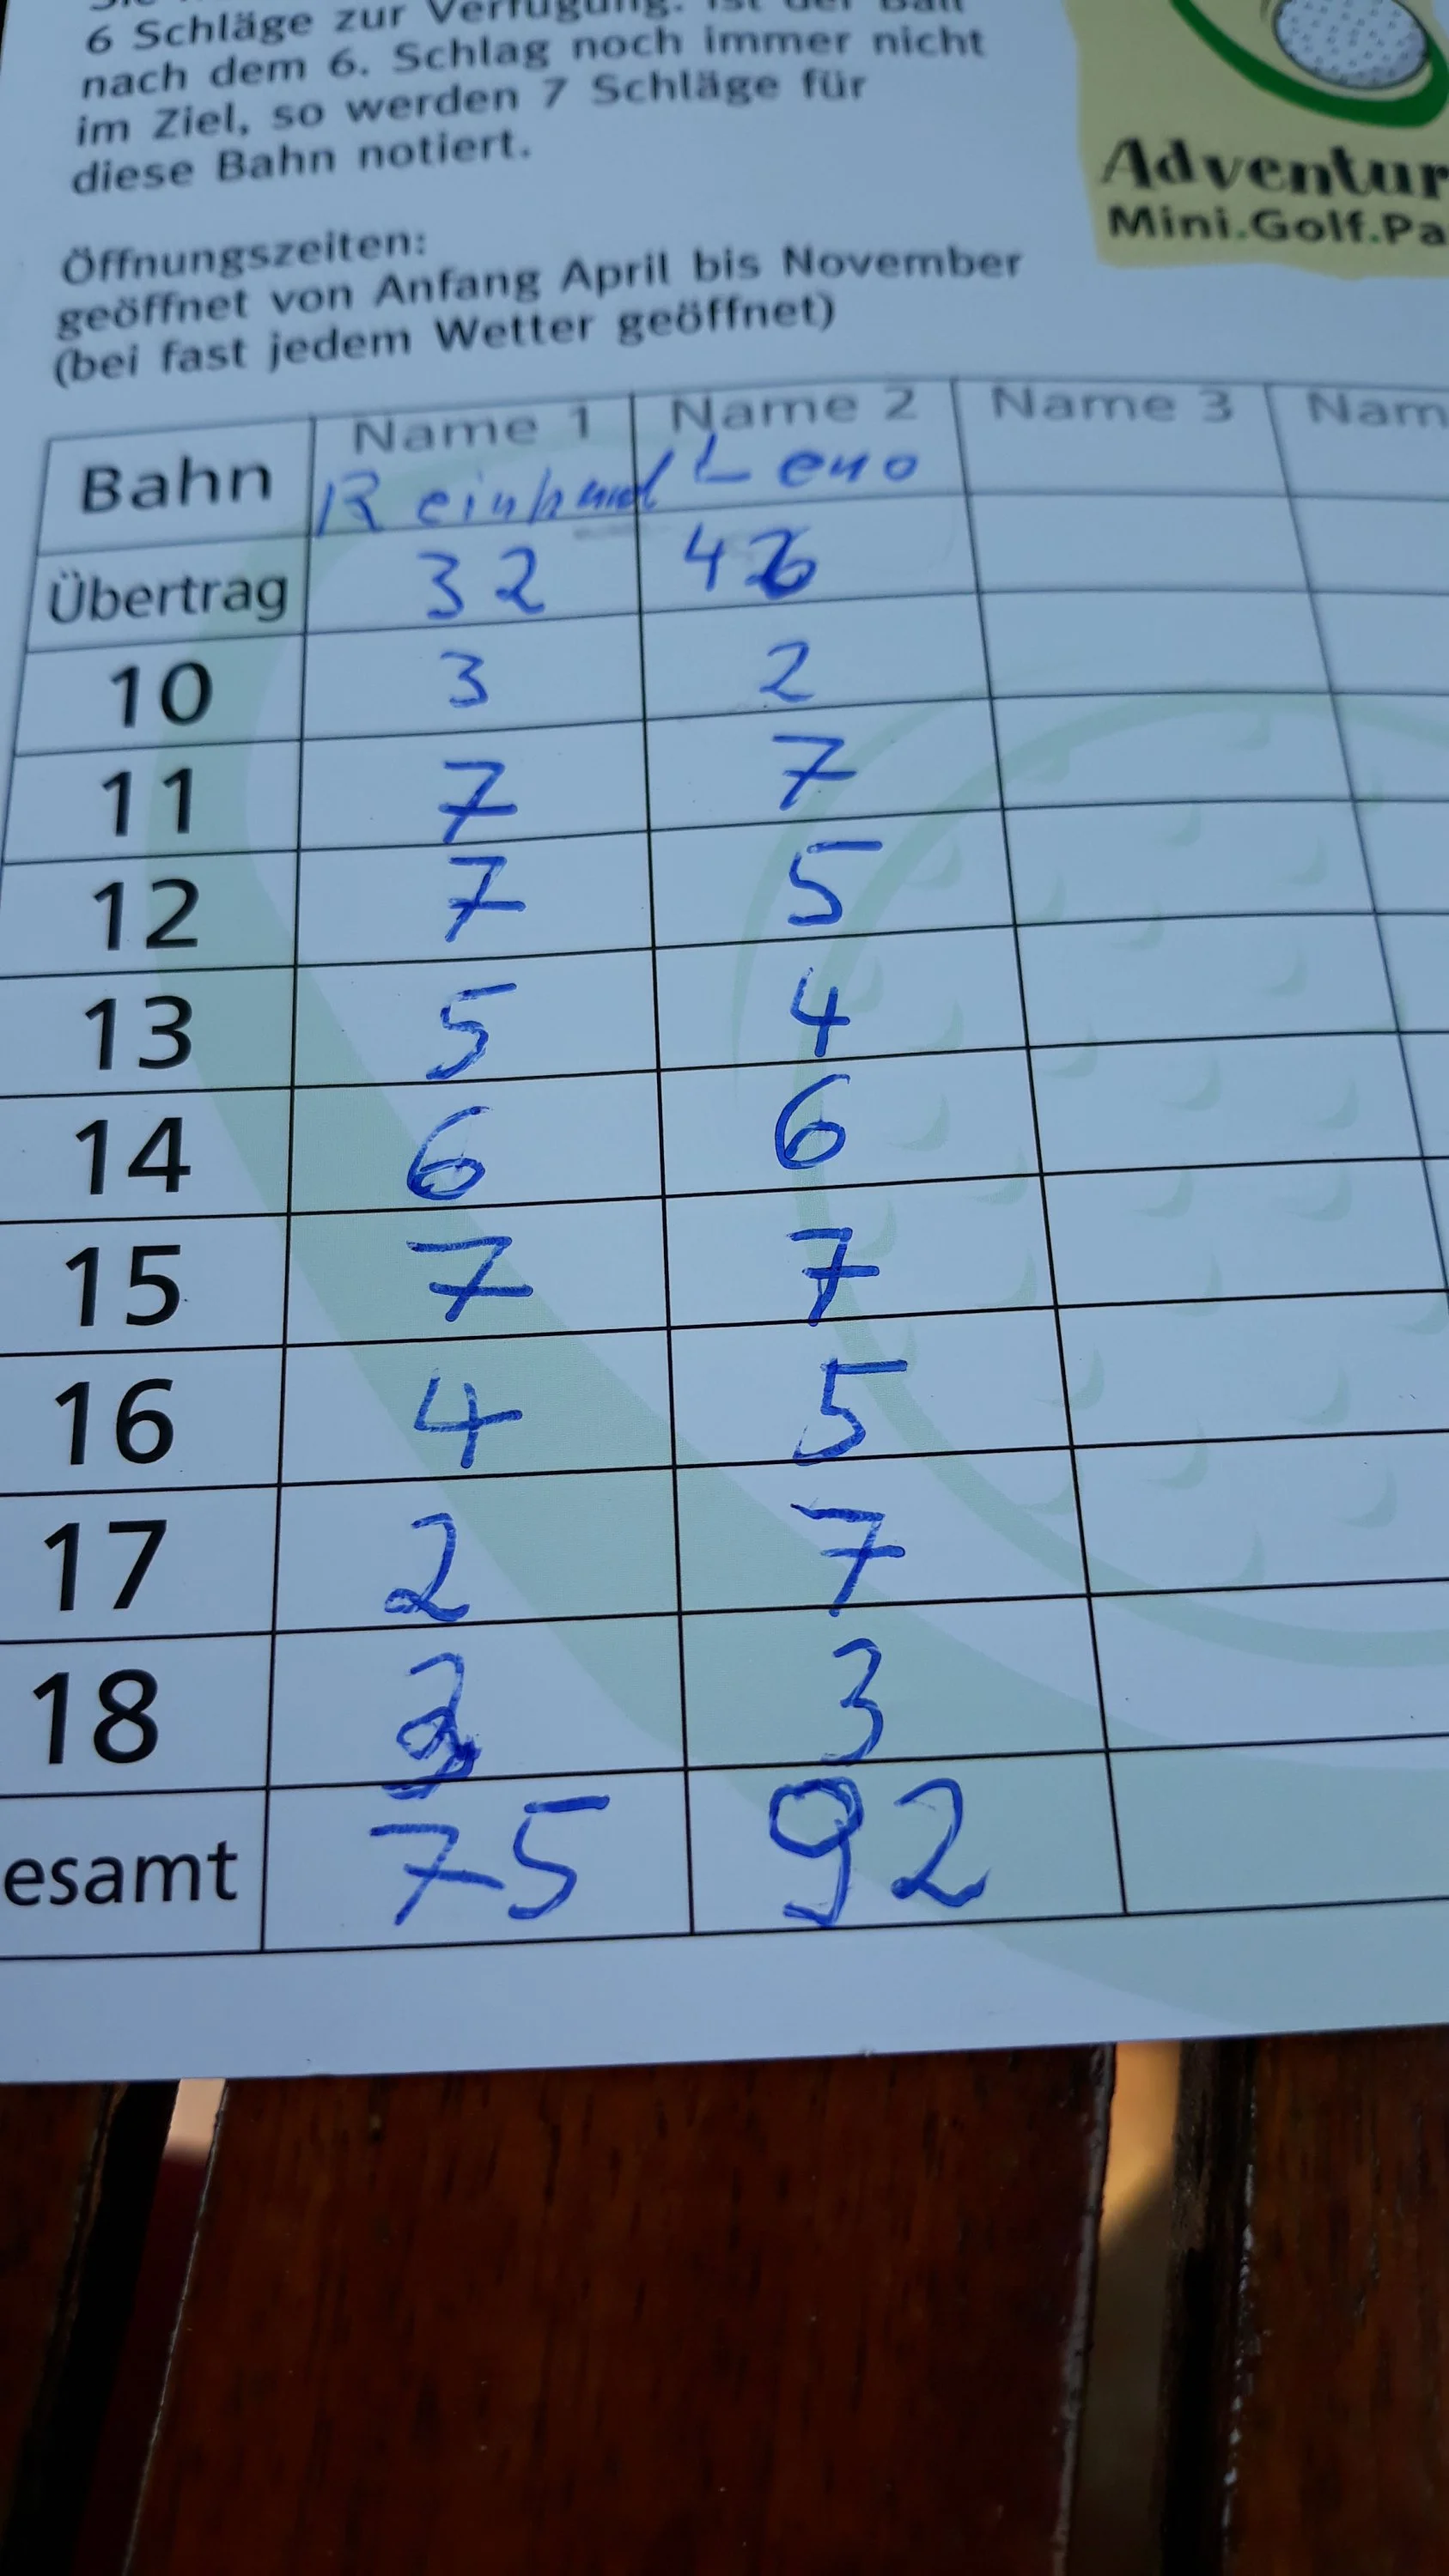 6 Schläge zur Verfügung. Ist der Ball
nach dem 6. Schlag noch immer nicht
im Ziel, so werden 7 Schläge für
diese Bahn notiert.
Adventur
Mini.Golf.Pa
Öffnungszeiten:
geöffnet von Anfang April bis November
(bei fast jedem Wetter geöffnet)
Bahn Name 1 Name 2 Name 3 Nam
Reinhard Leno
Übertrag 32 46
10 3 2
11 7 7
12 7 5
13 5 4
14 6 6
15 7 7
16 4 5
17 2 7
18 3
esamt 75 92